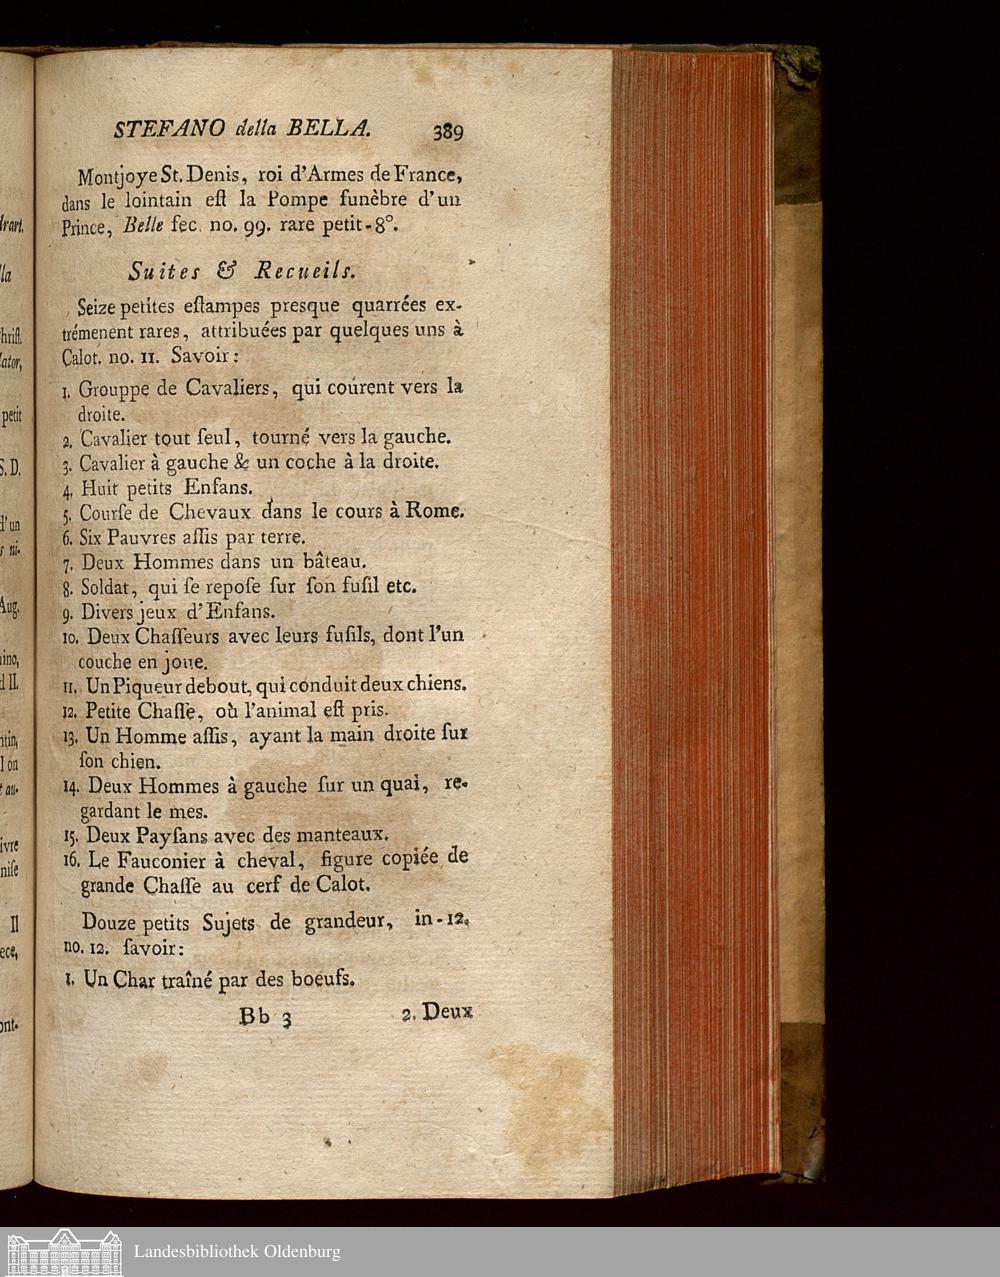 STEFANO della BELLA. 389
Montjoye St. Denis, roi d'Armes de France,
dans le lointain eſt la Pompe funèbre d'un
Prince, Belle fec. no. 99. rare petit-8°.
Suites & Recueils.
Seize petites eſtampes presque quarrées ex-
trémenent rares, attribuées par quelques uns à
Calot. no. 11. Savoir:
1. Grouppe de Cavaliers, qui courent vers la
droite.
2. Cavalier tout ſeul, tourné vers la gauche.
3. Cavalier à gauche & un coche à la droite.
4. Huit petits Enfans.
5. Courſe de Chevaux dans le cours à Rome.
6. Six Pauvres aſſis par terre.
7. Deux Hommes dans un bâteau.
8. Soldat, qui ſe repoſe ſur ſon fuſil etc.
9. Divers jeux d'Enfans.
10. Deux Chaſſeurs avec leurs fuſils, dont l'un
couche en joue.
11. Un Piqueur debout, qui conduit deux chiens.
12. Petite Chaſſe, où l'animal eſt pris.
13. Un Homme aſſis, ayant la main droite ſur
ſon chien.
14. Deux Hommes à gauche ſur un quai, re-
gardant le mes.
15. Deux Payſans avec des manteaux.
16. Le Fauconier à cheval, figure copiée de
grande Chaſſe au cerf de Calot.
Douze petits Sujets de grandeur, in-12.
no. 12. ſavoir:
1. Un Char traîné par des boeufs.
Bb 3 2. Deux
lla
hriſt.
lator,
petit
S. D.
d'un
Aug.
ino,
d II.
ntin,
l on
ivre
niſe
Il
ece,
ont-
Landesbibliothek Oldenburg